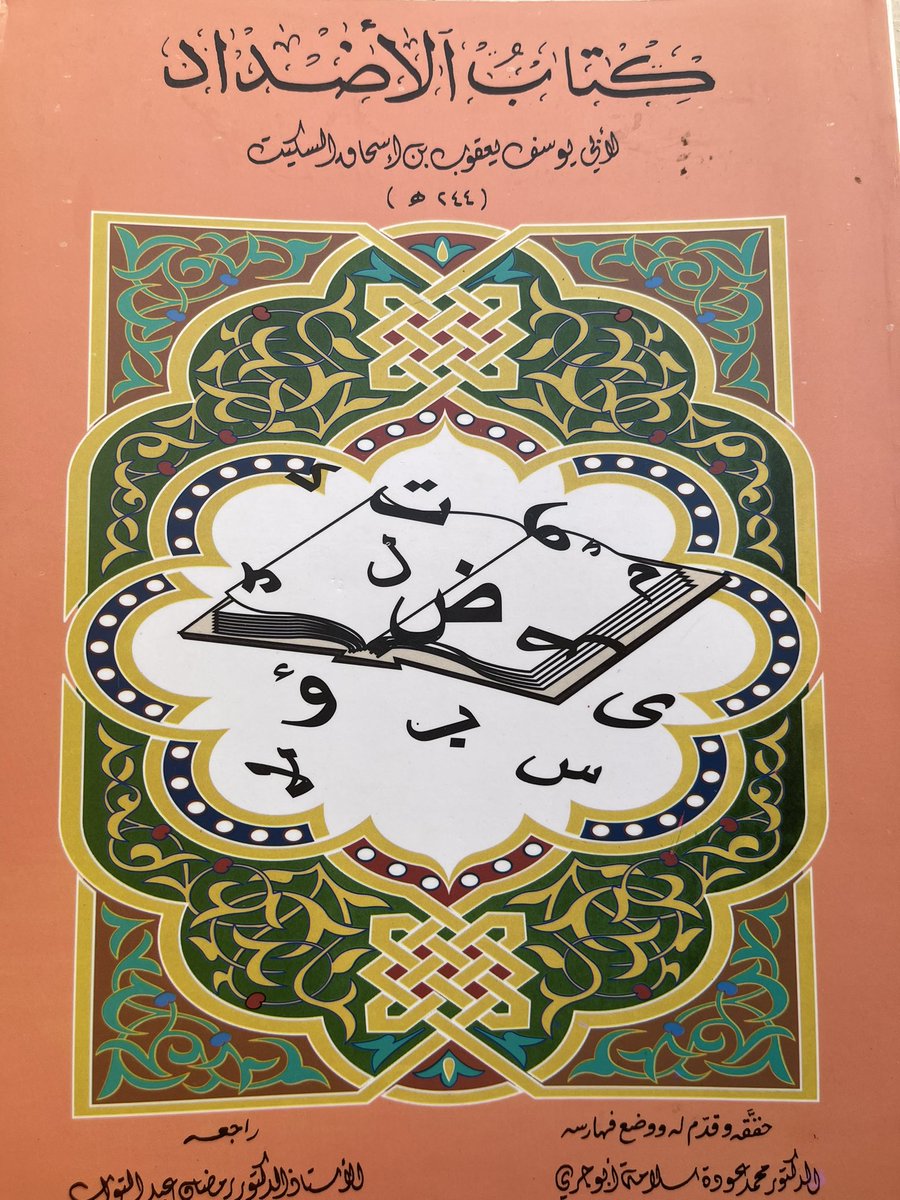 كتابُ الأضداد
لأبي يوسف يعقوب بن إسحاق السكيت
( ٢٤٤ هـ )
ت
ض
و
ب
س
ى
لا
حققَّه وقدّم له ووضع فهارسه
الدكتور محمد عودة سلامة أبو جري
راجعه
الأستاذ الدكتور رمضان عبد التواب